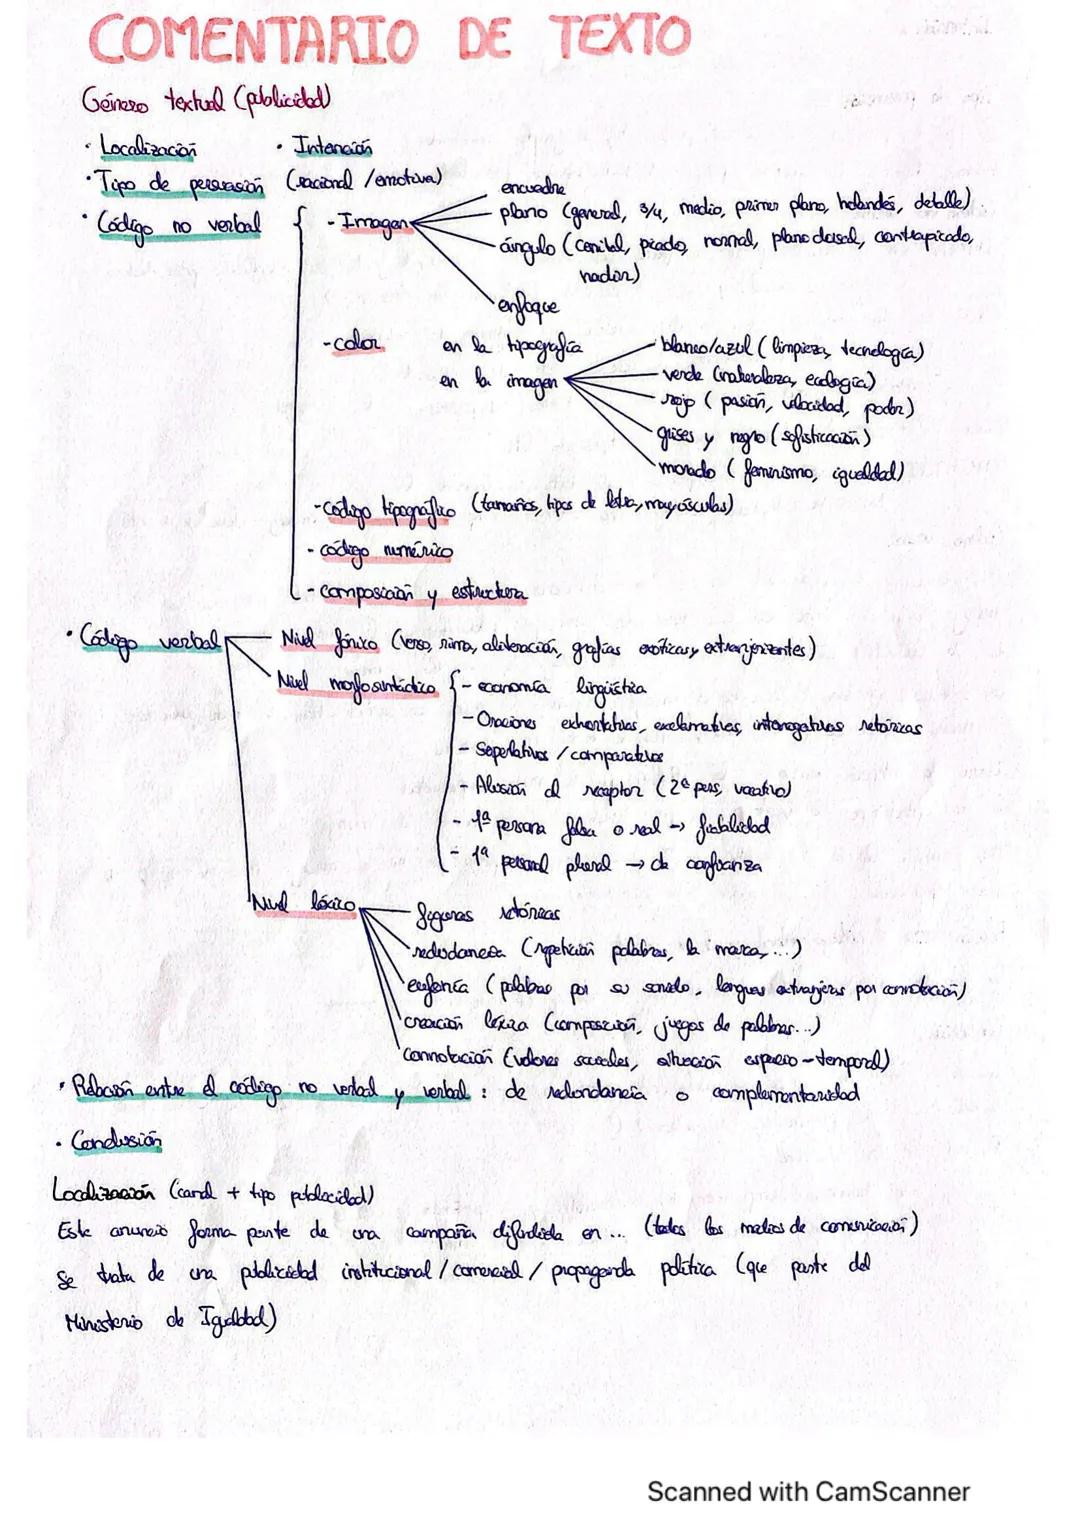 COMENTARIO DE TEXTO
Género textual (publicidad)
· Localización · Intención
· Tipo de persuasión (racional / emotiva)
· Código no verbal { - Imagen
encuadre
plano (general, 3/4, medio, primer plano, holandés, detalle).
ángulo (cenital, picado, normal, plano dorsal, contrapicado,
nadir)
enfoque
- color en la tipografía
en la imagen
blanco/azul (limpieza, tecnología)
verde (naturaleza, ecología)
rojo (pasión, velocidad, poder)
grises y negro (sofisticación)
morado (feminismo, igualdad)
- código tipográfico (tamaños, tipos de letra, mayúsculas)
- código numérico
- composición y estructura
· Código verbal
Nivel fónico (verso, rima, aliteración, grafías exóticas y extranjerizantes)
Nivel morfosintáctico { - economía lingüística
- Oraciones exhortativas, exclamativas, interrogativas retóricas
- Superlativos / comparativos
- Alusión al receptor (2ª pers, vocativo)
- 1ª persona falsa o real → fiabilidad
- 1ª personal plural → da confianza
Nivel léxico
figuras retóricas
redudancia (repetición palabras, la marca, ...)
eufonía (palabras por su sonido, lenguas extranjeras por connotación)
creación léxica (composición, juegos de palabras...)
connotación (valores sociales, situación espacio-temporal)
· Relación entre el código no verbal y verbal : de redundancia o complementariedad
· Conclusión
Localización (canal + tipo publicidad)
Este anuncio forma parte de una campaña difundida en ... (todos los medios de comunicación)
Se trata de una publicidad institucional / comercial / propaganda política (que parte del
Ministerio de Igualdad)
Scanned with CamScanner